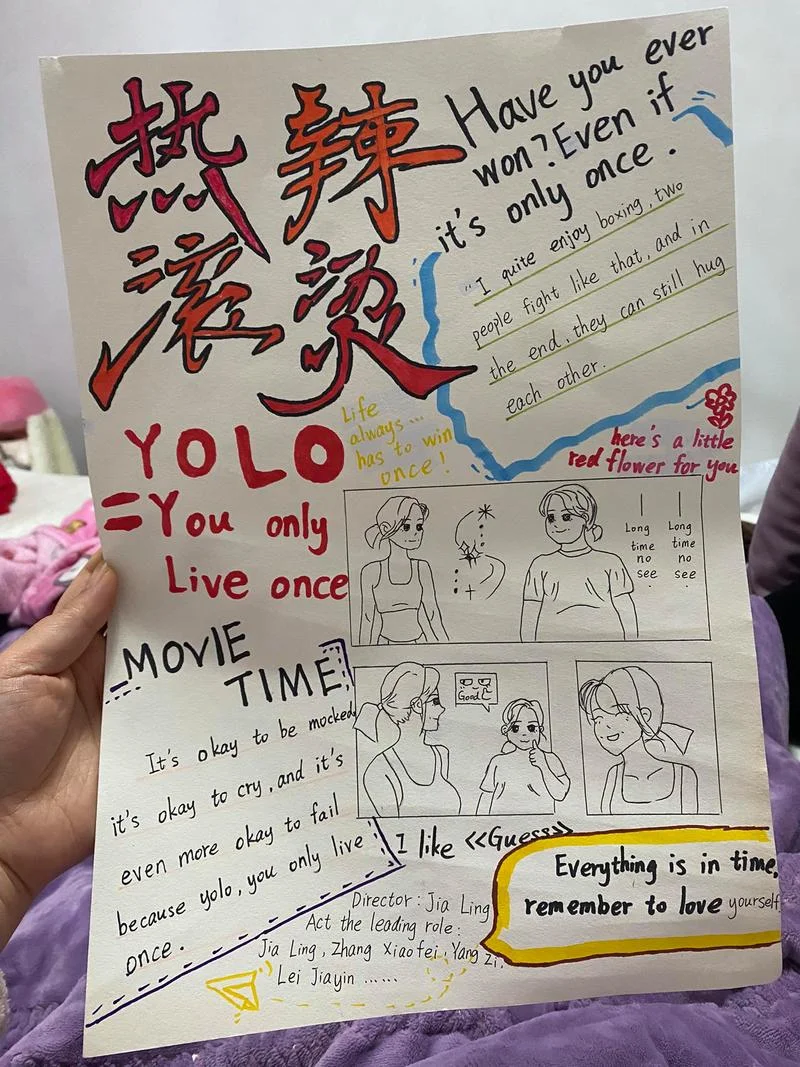 热辣
滚烫
Have you ever
won? Even if
it's only once.
"I quite enjoy boxing, two
people fight like that, and in
the end, they can still hug
each other.
Life
always...
has to win
once!
here's a little
red flower for you
YOLO
=You only
Live once
Long
time
no
see
.
Long
time
no
see
.
MOVIE
TIME
It's okay to be mocked,
it's okay to cry, and it's
even more okay to fail
because yolo, you only live
once.
Good
I like 《Guess》
Everything is in time,
remember to love yourself
Director: Jia Ling
Act the leading role:
Jia Ling, Zhang Xiaofei, Yang Zi,
Lei Jiayin ......